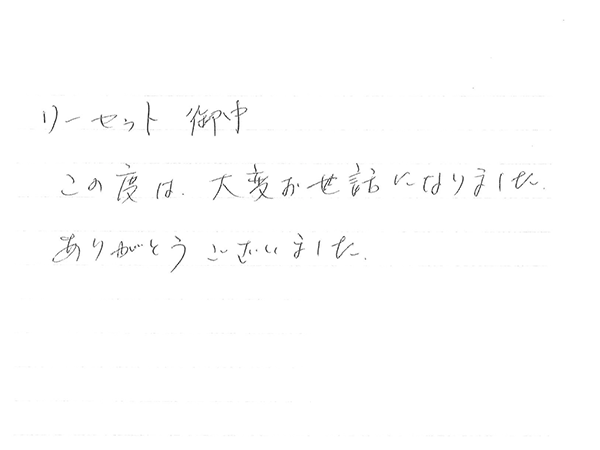 リーセット 御中
この度は、大変お世話になりました。
ありがとうございました。